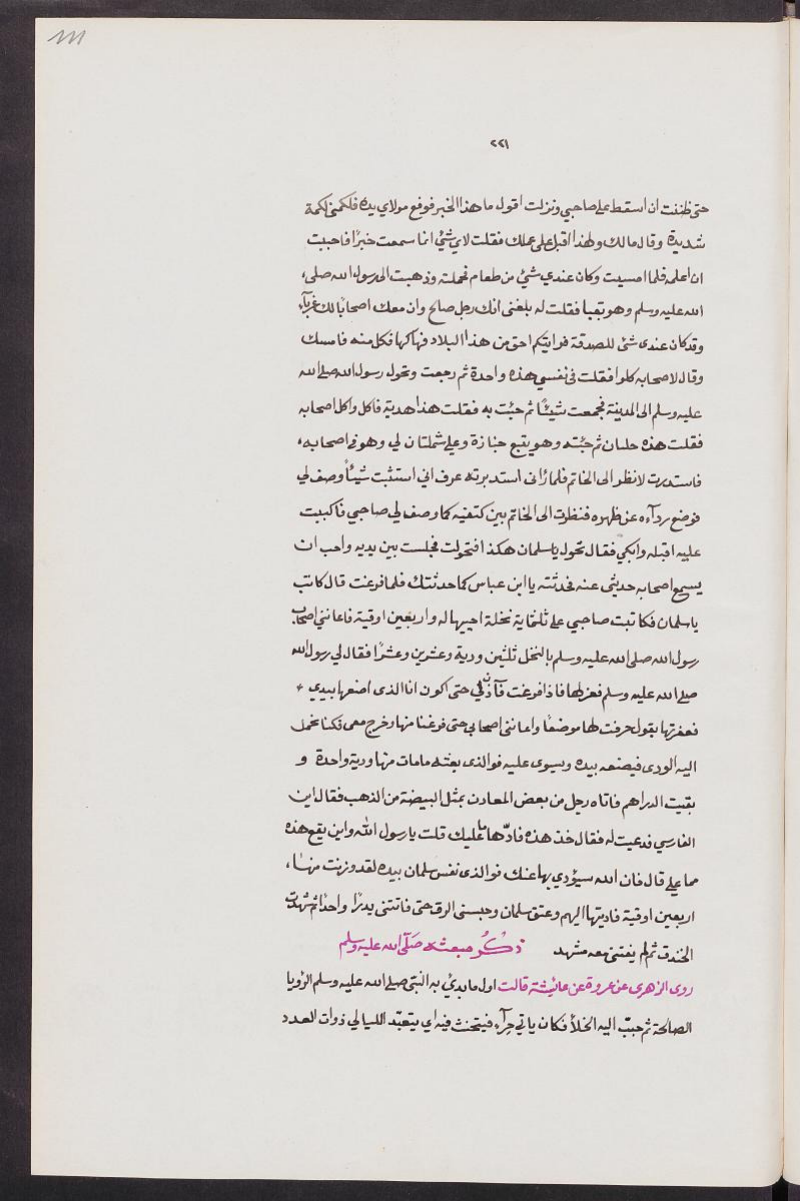 ٢٢١
حتى ظننت ان اسقط على صاحبي ونزلت اقول ما هذا الخبر فرفع مولاي يده فلكمنى لكمة
شديدة وقال مالك ولهذا اقبل على عملك فقلت لاي شئ انما سمعت خبرًا فاحببت
ان اعلمه فلما امسيت وكان عندي شئ من طعام فحملته وذهبت الى رسول الله صلى
الله عليه وسلم وهو بقبا فقلت له بلغنى انك رجل صالح وان معك اصحابًا لك غربآء
وقد كان عندى شئ للصدقة فرايتكم احق من هذا البلاد فهاكها فكل منه فامسك
وقال لاصحابه كلوا فقلت فى نفسي هذه واحدة ثم رجعت وتحول رسول الله صلى الله
عليه وسلم الى المدينة فجمعت شيئًا ثم جئت به فقلت هذا هدية فاكل واكل اصحابه
فقلت هذه خلتان ثم جئته وهو يتبع جنازة وعلي شملتان لي وهو فى اصحابه،
فاستدرت لانظر الى الخاتم فلما رٱنى استدبرته عرف اني استثبت شيئاً وصف لي
فوضع ردآءه عن ظهره فنظرت الى الخاتم بين كتفيه كما وصف لي صاحبي فاكببت
عليه اقبله وابكي فقال تحول يا سلمان هكذا فتحولت فجلست بين يديه واحب ان
يسمع اصحابه حديثى عنه فحدثته يا ابن عباس كما حدثتك فلما فرغت قال كاتب
يا سلمان فكاتبت صاحبي على ثلثماية نخلة احييها له واربعين اوقية فاعاننى اصحاب
رسول الله صلى الله عليه وسلم بالنخل ثلثين ودية وعشرين وعشرًا فقال لي رسول الله
صلى الله عليه وسلم فقر لها فاذا فرغت فآذنّي حتى اكون انا الذى اضعها بيدي
ففقرتها يقول حرفت لها موضعًا واعاننى اصحابي حتى فرغنا منها وخرج معى فكنا نحمل
اليه الودى فيضعه بيده ويسوى عليه فوالذى بعثه مامات منها ودية واحدة و
بقيت الدراهم فاتاه رجل من بعض المعادن بمثل البيضة من الذهب فقال اين
الفارسي فدعيت له فقال خذ هذه فادّها ما عليك قلت يا رسول الله واين يقع هذه
مما علي قال فان الله سيؤدي بها عنك فوالذى نفس سلمان بيده لقد وزنت منها،
اربعين اوقية فاديتها اليهم وعتق سلمان وحبسنى الرق حتى فاتتنى بدرًا واحدًا ثم شهدت
الخندق ثم لم يفتنى معه مشهد ذكر مبعثه صلّى الله عليه وسلم
روى الزهرى عن عروة عن عائيشة قالت اول ما بدئ به النبي صلى الله عليه وسلم الرؤيا
الصالحة ثم حبّب اليه الخلأ فكان ياتي حِرآء فيتحنث فيه اي يتعبّد الليالي ذوات العدد